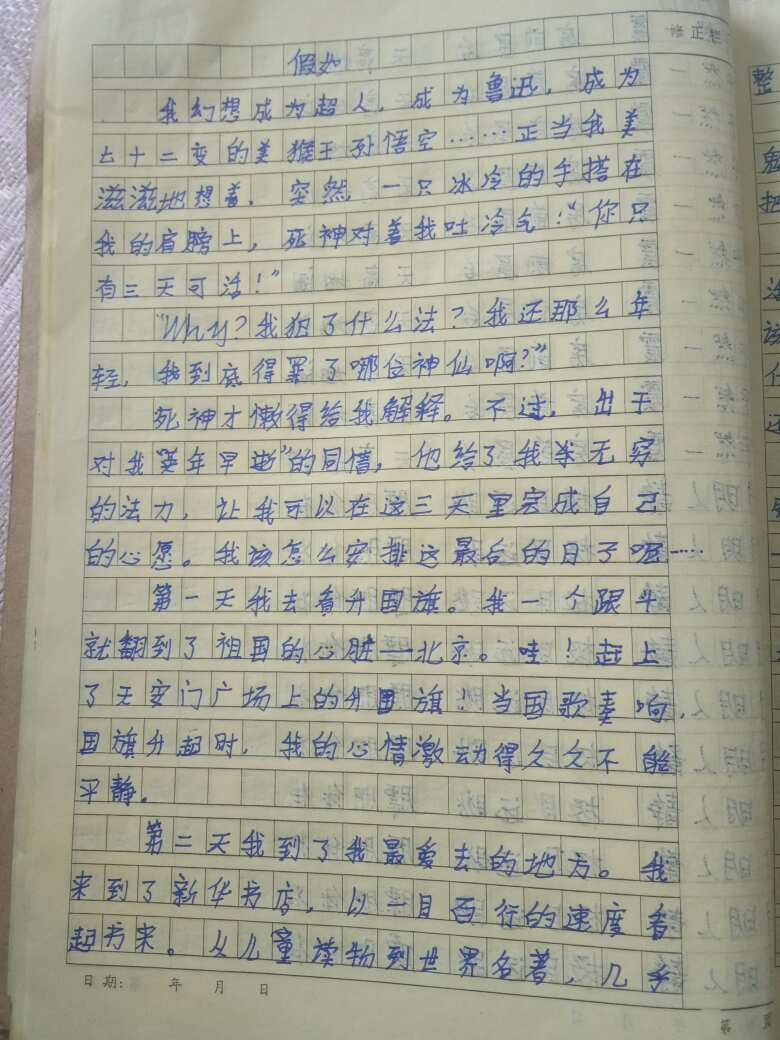 假如
我幻想成为超人，成为鲁迅，成为
七十二变的美猴王孙悟空……正当我美
滋滋地想着，突然，一只冰冷的手搭在
我的肩膀上，死神对着我吐冷气！“你只
有三天可活！”
“Why？我犯了什么法？我还那么年
轻，我到底得罪了哪位神仙啊？”
死神才懒得给我解释。不过，出于
对我“英年早逝”的同情，他给了我无穷
的法力，让我可以在这三天里完成自己
的心愿。我该怎么安排这最后的日子呢……
第一天我去看升国旗。我一个跟斗
就翻到了祖国的心脏—北京。哇！赶上
了天安门广场上的升国旗！当国歌奏响，
国旗升起时，我的心情激动得久久不能
平静。
第二天我到了我最爱去的地方。我
来到了新华书店，以一目百行的速度看
起书来。从儿童读物到世界名著，几乎
日期： 年 月 日
修正栏
整
把
该
第